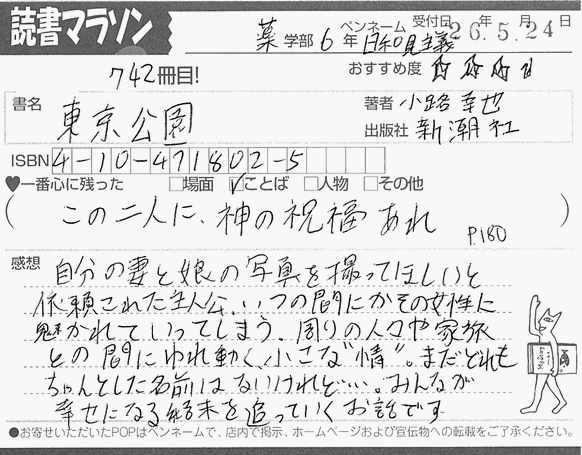 読書マラソン
薬 学部 6 年 ペンネーム 日和見主義 受付日 26年5月24日
742冊目! おすすめ度
書名 東京公園 著者 小路幸也
出版社 新潮社
ISBN 4-10-471802-5
♥一番心に残った □場面 ☑ことば □人物 □その他
(この二人に、神の祝福あれ P180)
感想 自分の妻と娘の写真を撮ってほしいと
依頼された主人公、いつの間にかその女性に
魅かれていってしまう。周りの人々や家族
との間にゆれ動く、小さな"情"。まだどれも
ちゃんとした名前はないけれど…。みんなが
幸せになる結末を追っていくお話です
●お寄せいただいたPOPはペンネームで、店内で掲示、ホームページおよび宣伝物への転載をご了承ください。